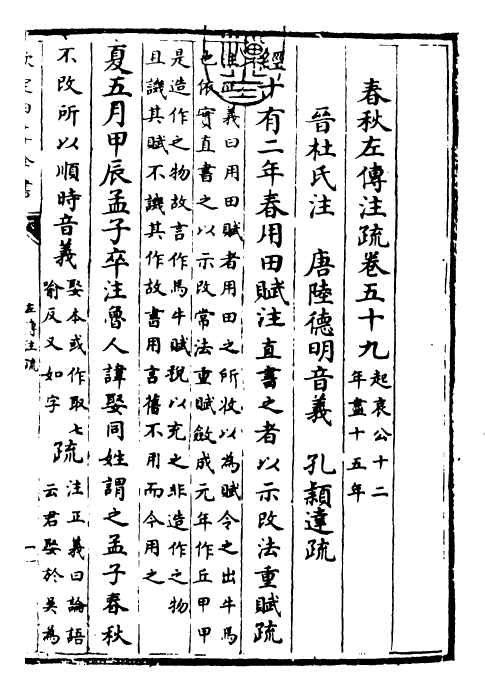 春秋左傳注疏卷五十九起哀公十二
年盡十五年
晉杜氏注　唐陸德明音義　孔穎達疏
經十有二年春用田賦注直書之者以示改法重賦疏
注正義曰用田賦者用田之所收以為賦令之出牛馬
也依實直書之以示改常法重賦斂成元年作丘甲甲
是造作之物故言作馬牛賦稅以充之非造作之物
且譏其賦不譏其作故書用言舊不用而今用之
夏五月甲辰孟子卒注魯人諱娶同姓謂之孟子春秋
不改所以順時音義娶本或作取七
喻反又如字
疏注正義曰論語
云君娶於吳為
欽定四庫全書
左傳注疏
一